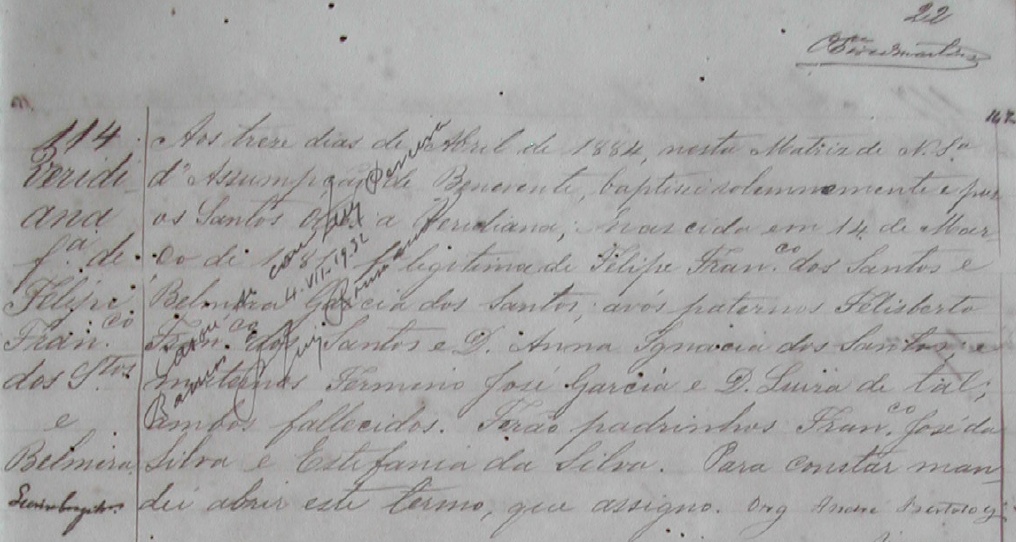 22
167
114
Veridi
ana
f.ª de
Felipe
Fran.co
dos S.tos
e
Belmira
Aos treze dias de Abril de 1884, nesta Matriz de N. S.ª
d' Assumpção de Benevente, baptisei solemnemente e puz
os Santos a Veridiana, nascida em 14 de Mar-
ço de legitima de Felipe Fran.co dos Santos e
Belmira Garcia dos Santos; avós paternos Felisberto
Fran.co dos Santos e D. Anna Ignacia dos Santos; e
maternos Fermino José Garcia e D. Luiza de tal;
ambos fallecidos. Ferão padrinhos Fran.co José da
Silva e Estefania da Silva. Para constar man-
dei abrir este termo, que assigno.
Casou se com
Pereira
4-VII-1932